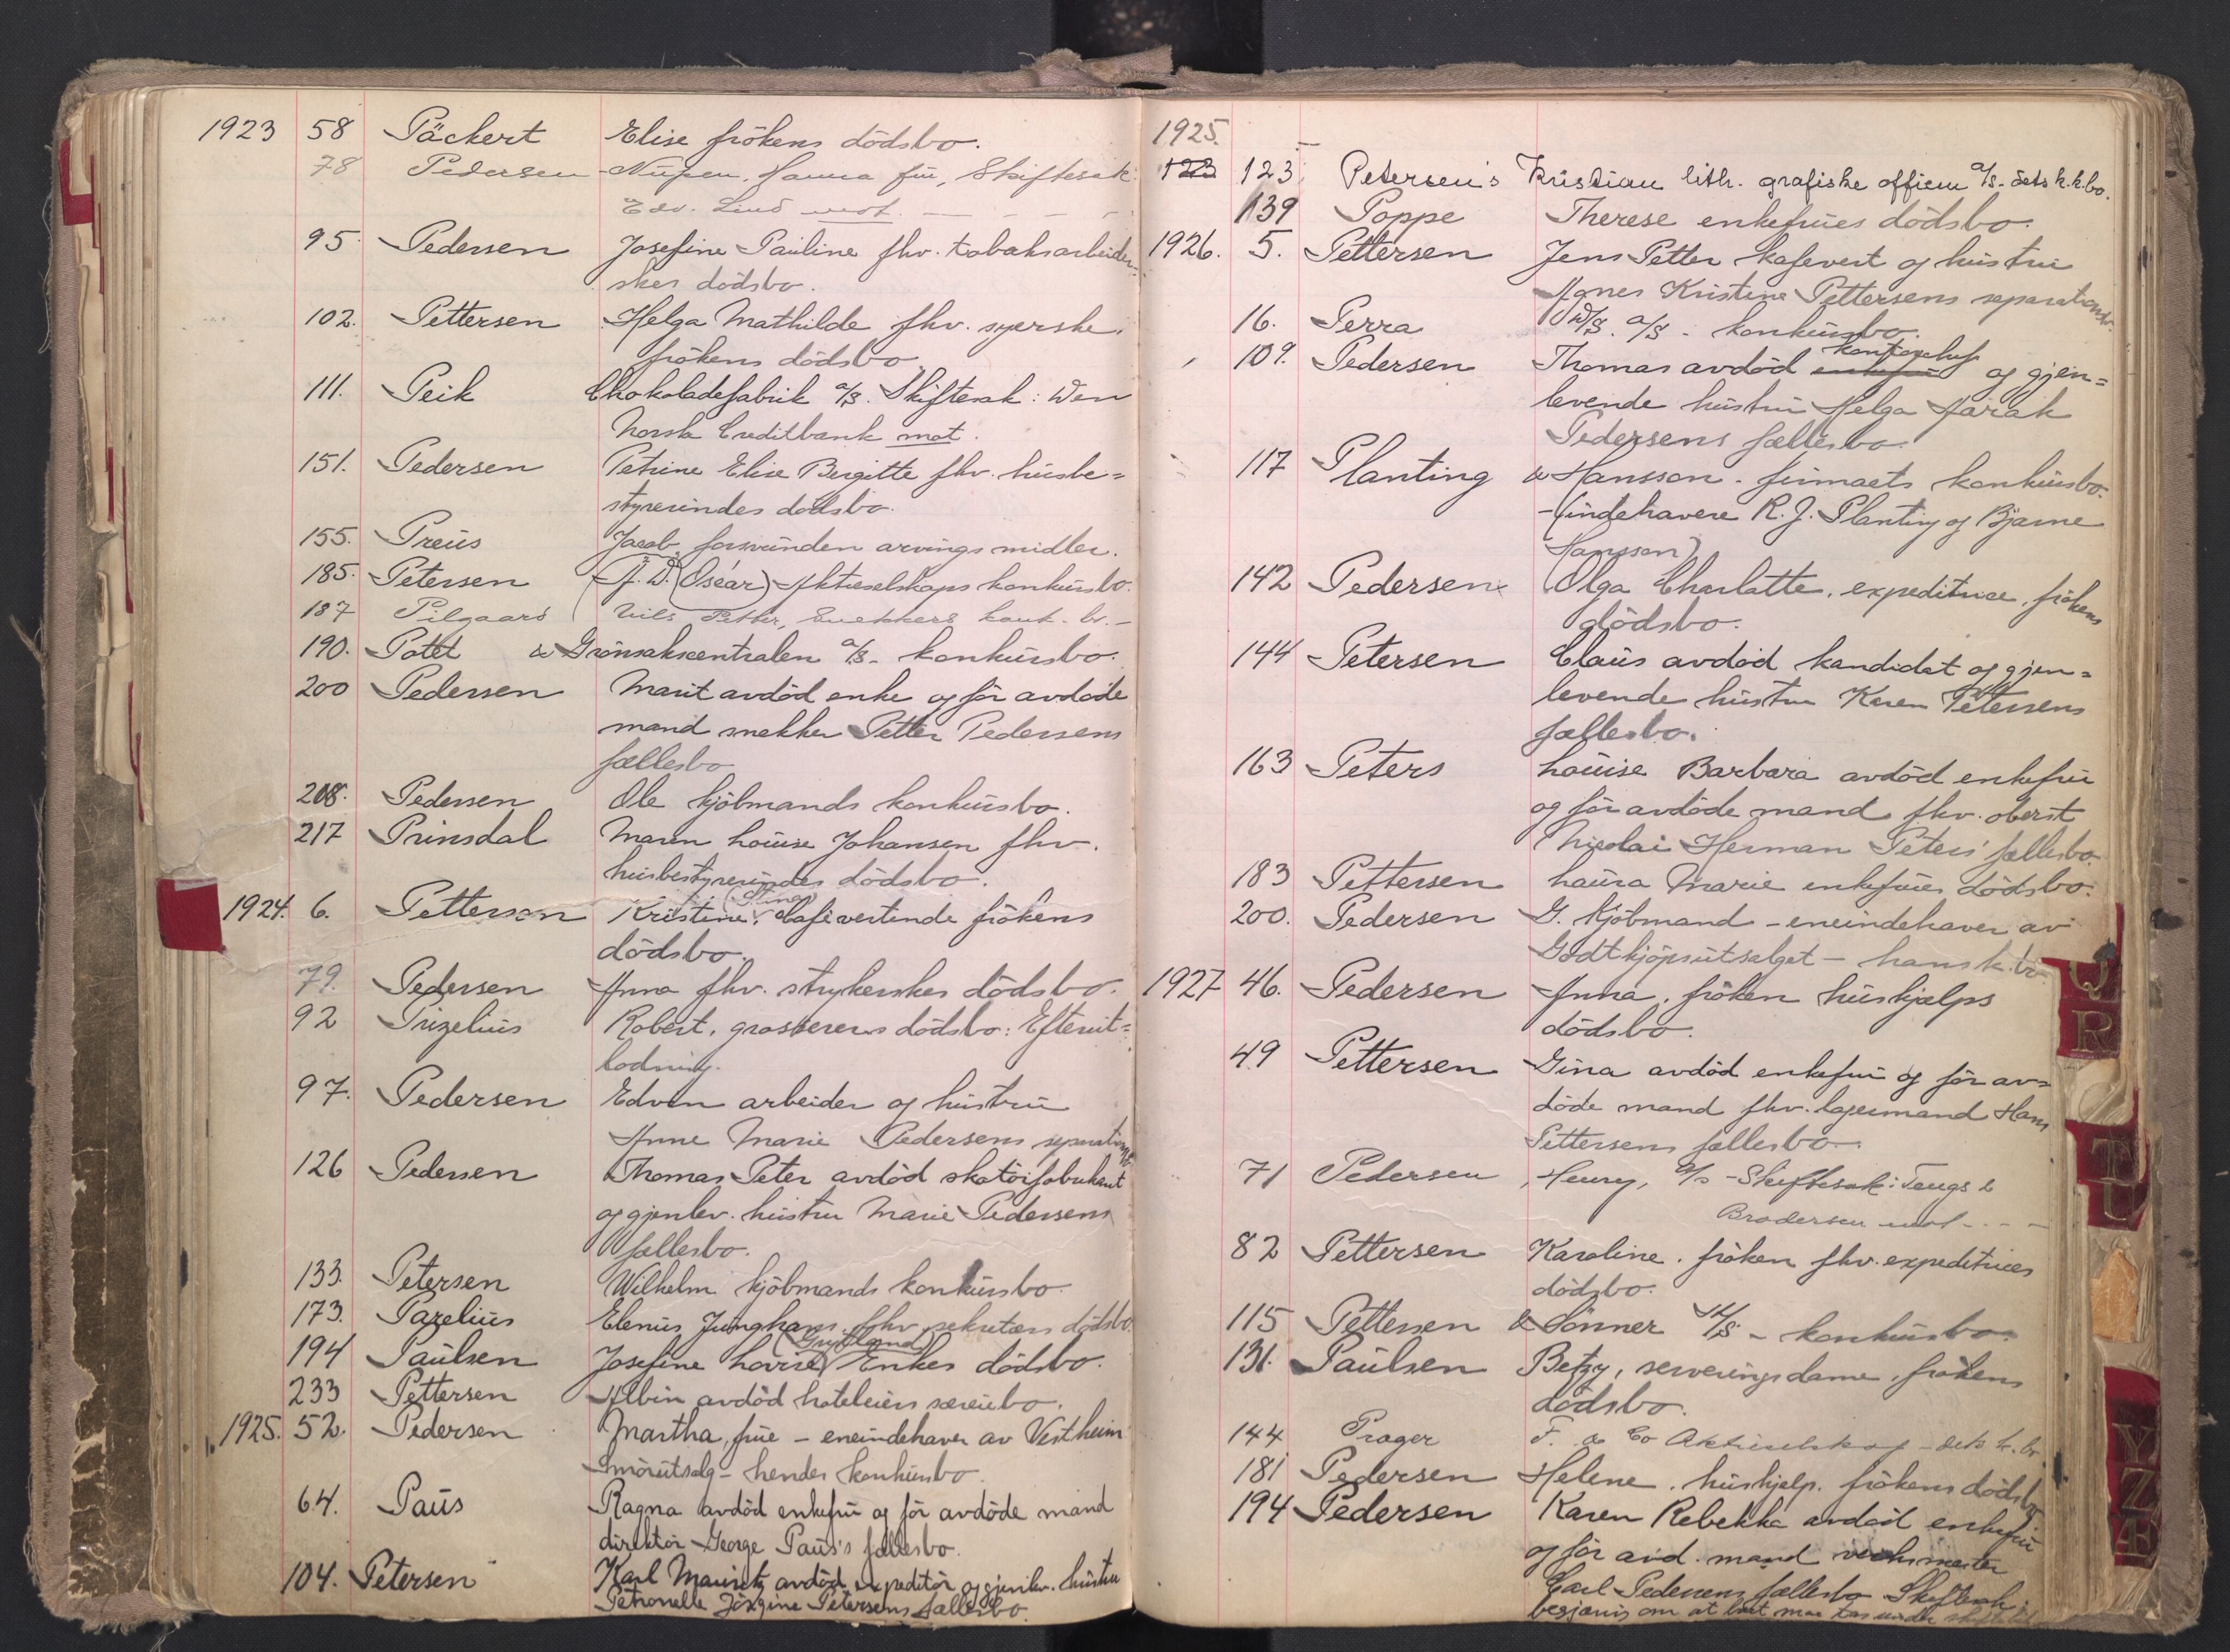 1923 58 Päckert Elise frökens dödsbo.
78 Pedersen - Nüpen, Hanna frü, Skiftesak:
Edv. Lind mot. — — — —
95. Pedersen Josefine Pauline fhv. tobaksarbeider=
skes dödsbo.
102. Pettersen Helga Mathilde fhv. syerske,
frökens dödsbo
111. Peik Chokoladefabrik a/s. Skiftesak: Den
Norske Creditbank mot.
151. Pedersen Petrine Elise Bergitte fhv. hüsbe=
styrerindes dödsbo.
155. Preüs Jacob, forsvunden arvings midler.
185. Petersen (J. D. (Oscar) Aktieselskaps konkürsbo.
187 Pilgaard Nils Petter, snekkers konk. bo. —
190. Potet & Grönsakscentralen a/s - konkürsbo.
200 Pedersen Marit avdöd enke og för avdöde
mand snekker Petter Pedersens
fællesbo
208. Pedersen Ole kjöbmands konkürsbo.
217 Prinsdal Maren Loüise Johansen fhv.
hüsbestyrerindes dödsbo.
1924. 6. Petterson Kristine (Stina) Cafévertinde frökens
dödsbo.
79. Pedersen Anna fhv. strykerskes dödsbo.
92 Prizeliüs Robert, grosserers dödsbo: Efterüt=
lodning.
97. Pedersen Edvin arbeider og hüstrü
Anne Marie Pedersens separationsb.
126 Pedersen Thomas Peter avdöd skotöifabrikant
og gjenlev. hüstrü Marie Pedersens
fællesbo.
133. Petersen Wilhelm kjöbmands konkürsbo.
173. Pazeliüs Eleniüs Junghans, fhv. sekretærs dödsbo
194 Paülsen Josefine Lovise (Grytland) Enkes dödsbo.
233 Pettersen Albin avdöd hoteleiers særeiebo.
1925. 52. Pedersen Martha, früe - eneindehaver av Vestheim
Smörütsalg - hendes konkürsbo.
64. Paüs Ragna avdöd enkefrü og för avdöde mand
direktör George Paüs's fællesbo.
104. Petersen Karl Mauritz avdöd expeditör og gjenlev. hüstrü
Petronelle Jörgine Petersens fællesbo.
1925.
123 123 Petersen's Kristian lith. grafiske officin a/s - dets k.k.bo.
139 Poppe Therese enkefrües dödsbo.
1926. 5. Pettersen Jens Petter kafevert og hüstrü
Agnes Kristine Pettersens separationsb.
16. Perra D/S. a/s - konkürsbo.
109. Pedersen Thomas avdöd enkefrü kontorchef og gjen=
levende hüstrü Helga Harak
Pedersens fællesbo.
117 Planting & Hansson - firmaets konkürsbo.
- (indehavere R. J. Planting og Bjarne
Hansson)
142 Pedersen Olga Charlotte, expeditrice, frökens
dödsbo.
144 Petersen Claüs avdöd kandidat og gjen=
levende hüstrü Karen Petersens
fællesbo.
163 Peters Loüise Barbara avdöd enkefrü
og för avdöde mand fhv. oberst
Nicolai Herman Peters' fællesbo.
183 Pettersen Laüra Marie enkefrües dödsbo.
200. Pedersen G. kjöbmand - eneindehaver av
Godtkjöpsütsalget - hans k. bo
1927 46. Pedersen Anna, fröken hüshjælps
dödsbo.
49 Pettersen Gina avdöd enkefrü og för av=
döde mand fhv. lagermand Hans
Pettersens fællesbo.
71 Pedersen Henry, a/s - Skiftesak: Tengs &
Brodersen mot - - - —
82 Pettersen Karoline, fröken fhv. expeditrices
dödsbo.
115 Pettersen & Sönner A/S - konkürsbo.
131. Paülsen Betzy, serveringsdame, frökens
dödsbo.
144 Prager F. & Co Aktieselskap - dets k. bo
181 Pedersen Helene, hüshjelp, frökens dödsbo
194 Pedersen Karen Rebekka avdöd enkefrü
og för avd. mand verksmester
Carl Pedersens fællesbo Skiftesak:
begjæring om at boet maa tas under
Q
R
T
U
Y
Z
Æ